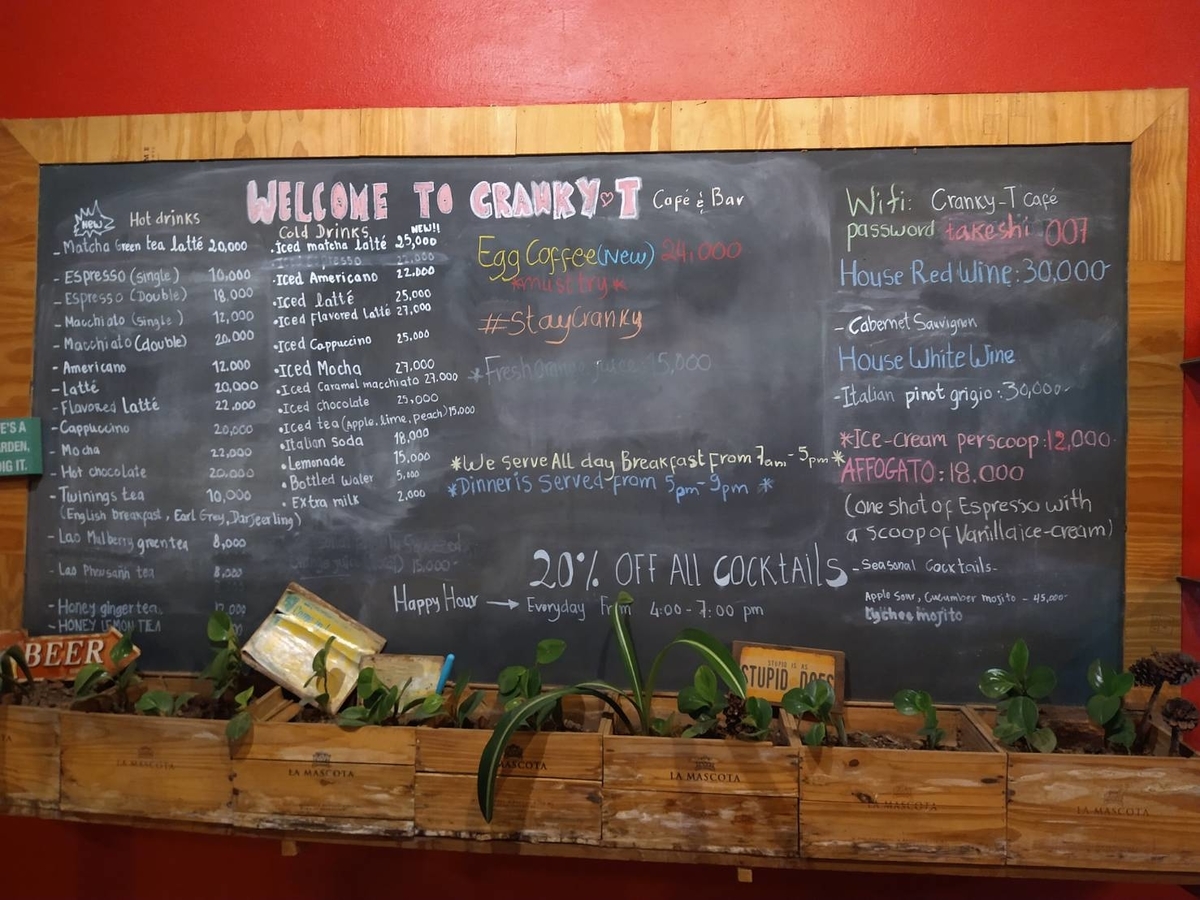 WELCOME TO CRANKY T Café & Bar
NEW
Hot drinks
- Matcha Green tea latté 20,000
- Espresso (single) 10,000
- Espresso (Double) 18,000
- Macchiato (single) 12,000
- Macchiato (double) 20,000
- Americano 12,000
- Latté 20,000
- Flavored Latté 22,000
- Cappuccino 20,000
- Mocha 22,000
- Hot chocolate 20,000
- Twinings tea 10,000
(English breakfast, Earl Grey, Darjeerling)
- Lao Mulberry green tea 8,000
- Lao Phousan tea 8,000
- Honey ginger tea 12,000
- HONEY LEMON TEA
Cold Drinks NEW!!
• Iced matcha latté 25,000
• Iced Americano 22,000
• Iced latté 25,000
• Iced Flavored Latté 27,000
• Iced Cappuccino 25,000
• Iced Mocha 27,000
• Iced Caramel macchiato 27,000
• Iced chocolate 25,000
• Iced tea (Apple, lime, peach) 15,000
• Italian soda 18,000
• Lemonade 15,000
• Bottled water 5,000
• Extra milk 2,000
Egg Coffee (New) 24,000
*must try*
#StayCranky
*Fresh juice 15,000
*We serve All day Breakfast from 7am - 5pm*
*Dinner is Served from 5pm-9pm *
20% OFF All COCKtAilS
Happy Hour → Everyday From 4:00 - 7:00 pm
Wifi: Cranky-T café
password takeshi 007
House Red Wine: 30,000
- Cabernet Sauvignon
House White Wine
- Italian pinot grigio: 30,000-
*Ice-cream per scoop: 12,000-
AFFOGATO: 18.000
(one shot of Espresso with
a scoop of Vanilla ice-cream)
- Seasonal Cocktails-
Apple Sour, Cucumber mojito - 45,000-
Lychee mojito
BEER
STUPID IS AS
STUPID DOES
LA MASCOTA
LA MASCOTA
LA MASCOTA
LA MASCOTA
LA MASCOTA
LA MASCOTA